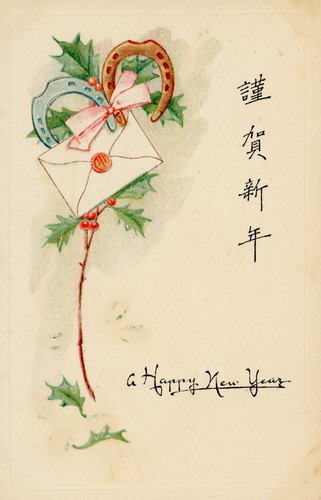 謹賀新年
a Happy New Year